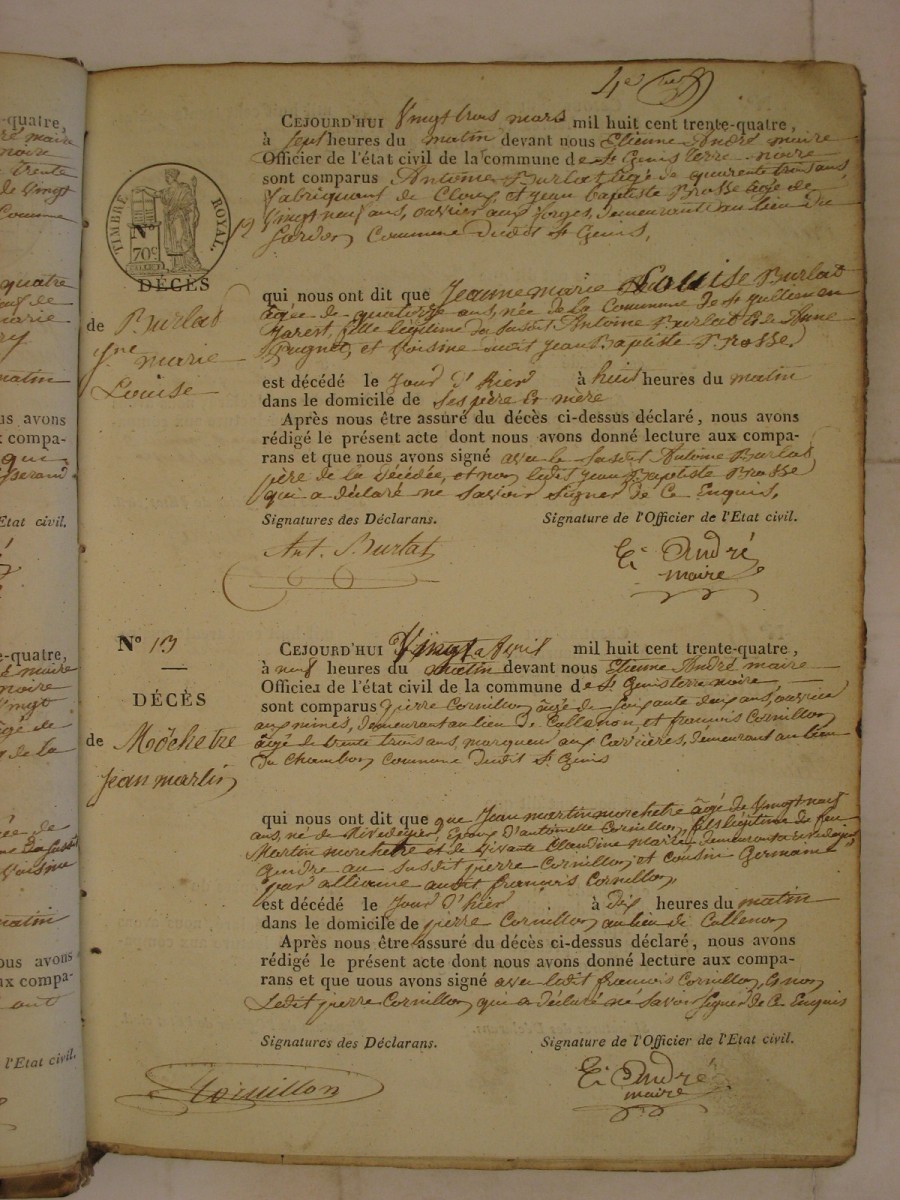 4e
CEJOURD'HUI Vingt trois mars mil huit cent trente-quatre,
à sept heures du matin devant nous Etienne André maire
Officier de l'état civil de la commune de St Genis terre noire
sont comparus Antoine Burlat âgé de quarente trois ans,
fabriquant de Cloux, et jean baptiste Brosse âgé de
Vingt neuf ans, ouvrier aux forges, demeurant au lieu du
Sardon Commune dudit St Genis,
TIMBRE ROYAL.
No 12
70c
DÉCÈS
de Burlat
jne marie
Louise
qui nous ont dit que Jeanne marie Louise Burlat
âgée de quatorze ans, née de la Commune de St
Jarest, fille légitime du susdit Antoine Burlat & de Anne
Pugnet, et Voisine dudit jean Baptiste Brosse,
est décédé le jour d'hier à huit heures du matin
dans le domicile de ses père & mère
Après nous être assuré du décès ci-dessus déclaré, nous avons
rédigé le présent acte dont nous avons donné lecture aux compa-
rans et que nous avons signé avec le susdit Antoine Burlat
père de la décédée, et non ledit jean Baptiste Brosse
qui a déclaré ne savoir signer de Ce Enquis,
Signatures des Déclarans. Signature de l'Officier de l'Etat civil.
Ant. Burlat
Ee André
maire
No 13
DÉCÈS
de Mochetre
Jean martin
CEJOURD'HUI Vingt Avril mil huit cent trente-quatre,
à neuf heures du matin devant nous Etienne André maire
Officier de l'état civil de la commune de St Genis terre noire
sont comparus pierre Cornillon âgé de soixante deux ans, ouvrier
aux mines, demeurant au lieu de Collenon et francois Cornillon
âgé de trente trois ans, marqueur aux Carrières, demeurant au lieu
du Chambon Commune dudit St Genis
qui nous ont dit que que Jean martin mochetre âgé de Vingt neuf
ans, né de Rivedegier, Epoux d'antoinette Cornillon, fils légitime de feu
Martin mochetre et de Vivante Claudine demeurant a Rivedegier
Gendre au susdit pierre Cornillon, et cousin Germain
par alliance audit francois Cornillon,
est décédé le jour d'hier à dix heures du matin
dans le domicile de pierre Cornillon au lieu de Collenon
Après nous être assuré du décès ci-dessus déclaré, nous avons
rédigé le présent acte dont nous avons donné lecture aux compa-
rans et que nous avons signé avec ledit francois Cornillon, & non
Ledit pierre Cornillon qui a déclaré ne savoir signer de Ce Enquis
Signatures des Déclarans. Signature de l'Officier de l'Etat civil.
Cornillon
Ee André
maire